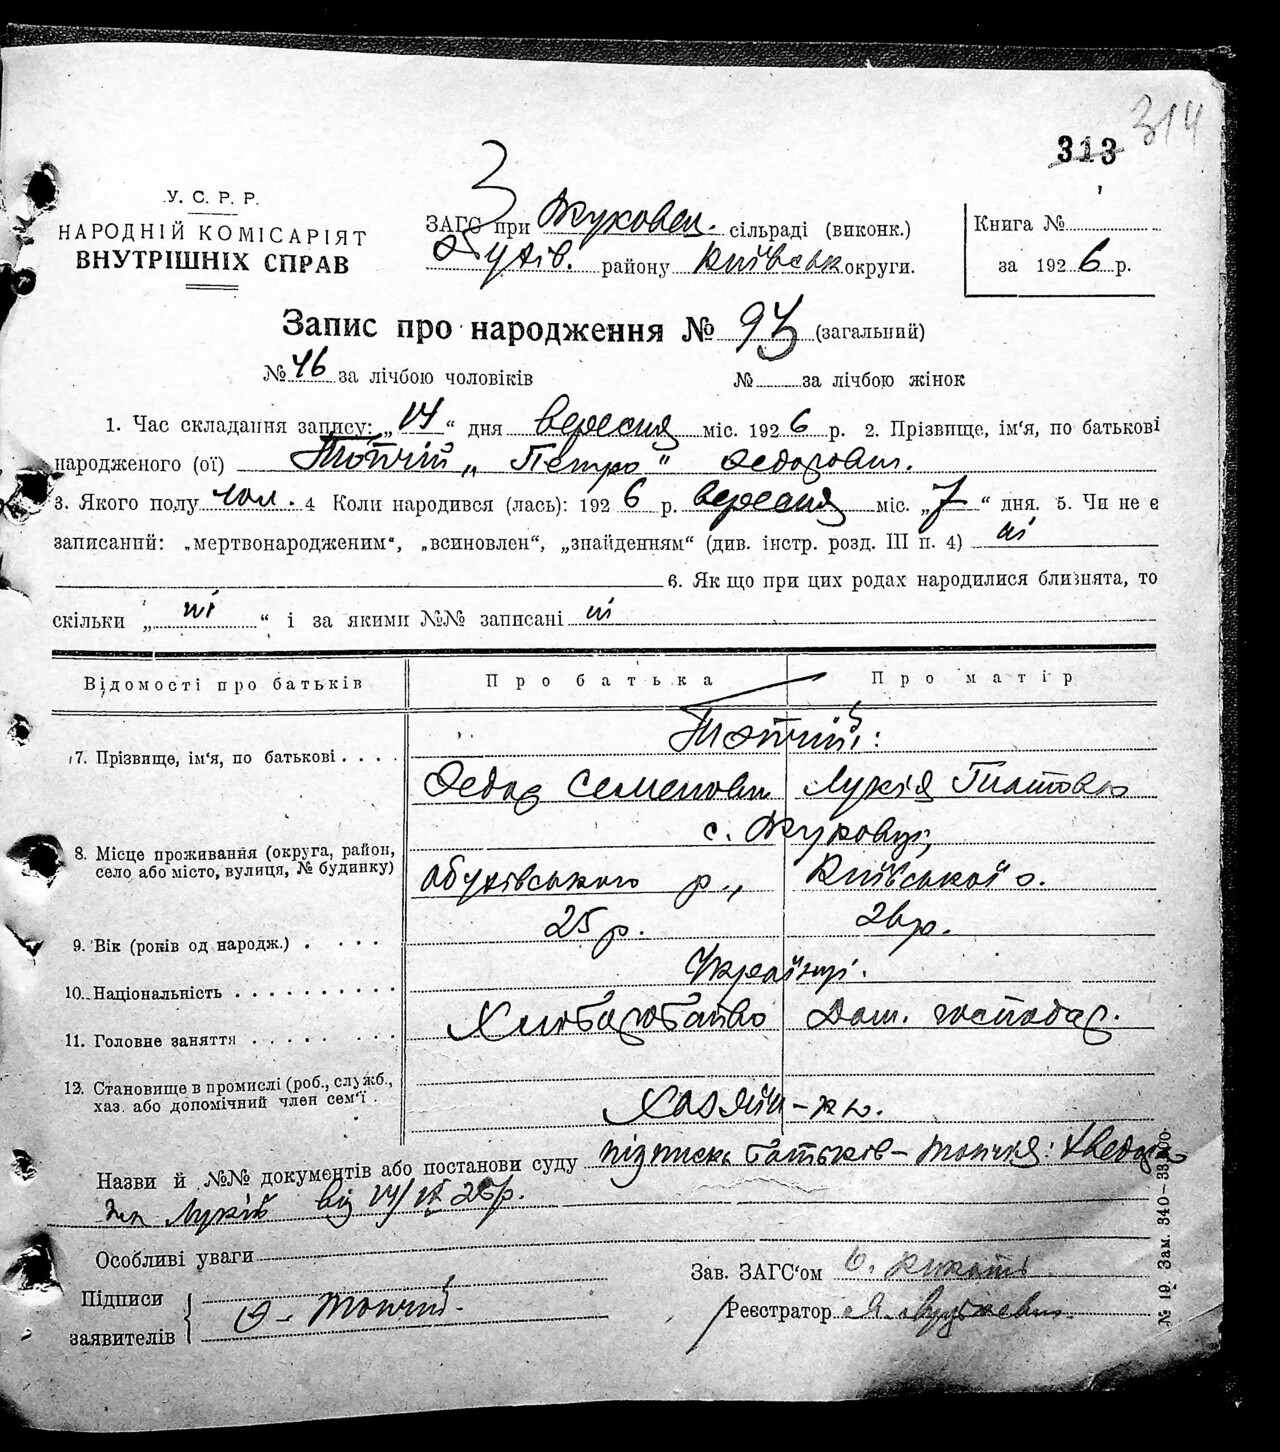 314
313
У. С. Р. Р.
НАРОДНІЙ КОМІСАРІЯТ
ВНУТРІШНІХ СПРАВ
ЗАГС при Жуковец. сільраді (виконк.)
Обухів. району Київськ округи.
Книга №
за 1926 р.
Запис про народження № 93 (загальний)
№ 46 за лічбою чоловіків № за лічбою жінок
1. Час складання запису: „14“ дня вересня міс. 1926 р. 2. Прізвище, ім'я, по батькові
народженого (ої) Топчій „Петро“ Федорович.
3. Якого полу чол. 4 Коли народився (лась): 1926 р. вересня міс. „7“ дня. 5. Чи не є
записаний: „мертвонародженим“, „всиновлен“, „знайденням“ (див. інстр. розд. III п. 4) ні
6. Як що при цих родах народилися близнята, то
скільки „ні“ і за якими №№ записані ні
Відомості про батьків Про батька Про матір
7. Прізвище, ім'я, по батькові . . . . Топчій:
Федор Семенович Лукія
8. Місце проживання (округа, район, село або місто, вулиця, № будинку) с. Жуковці,
Обухівського р., Київської о.
9. Вік (років од народж.) . . . . 25 р. 26 р.
10. Національність . . . . . . . . . . Українці.
11. Головне заняття . . . . . . . . Хліборобство Дом. господар.
12. Становище в промислі (роб., служб.,
хаз. або допомічний член сем'ї . Хазяїн-ка.
Назви й №№ документів або постанови суду підписка батьків – Топчія: Хведора
та Лукії від 14/IX 26 р.
Особливі уваги
Підписи
заявителів
Ф. Топчий.
Зав. ЗАГС'ом
Реєстратор
№ 19. Зам. 340—33.000